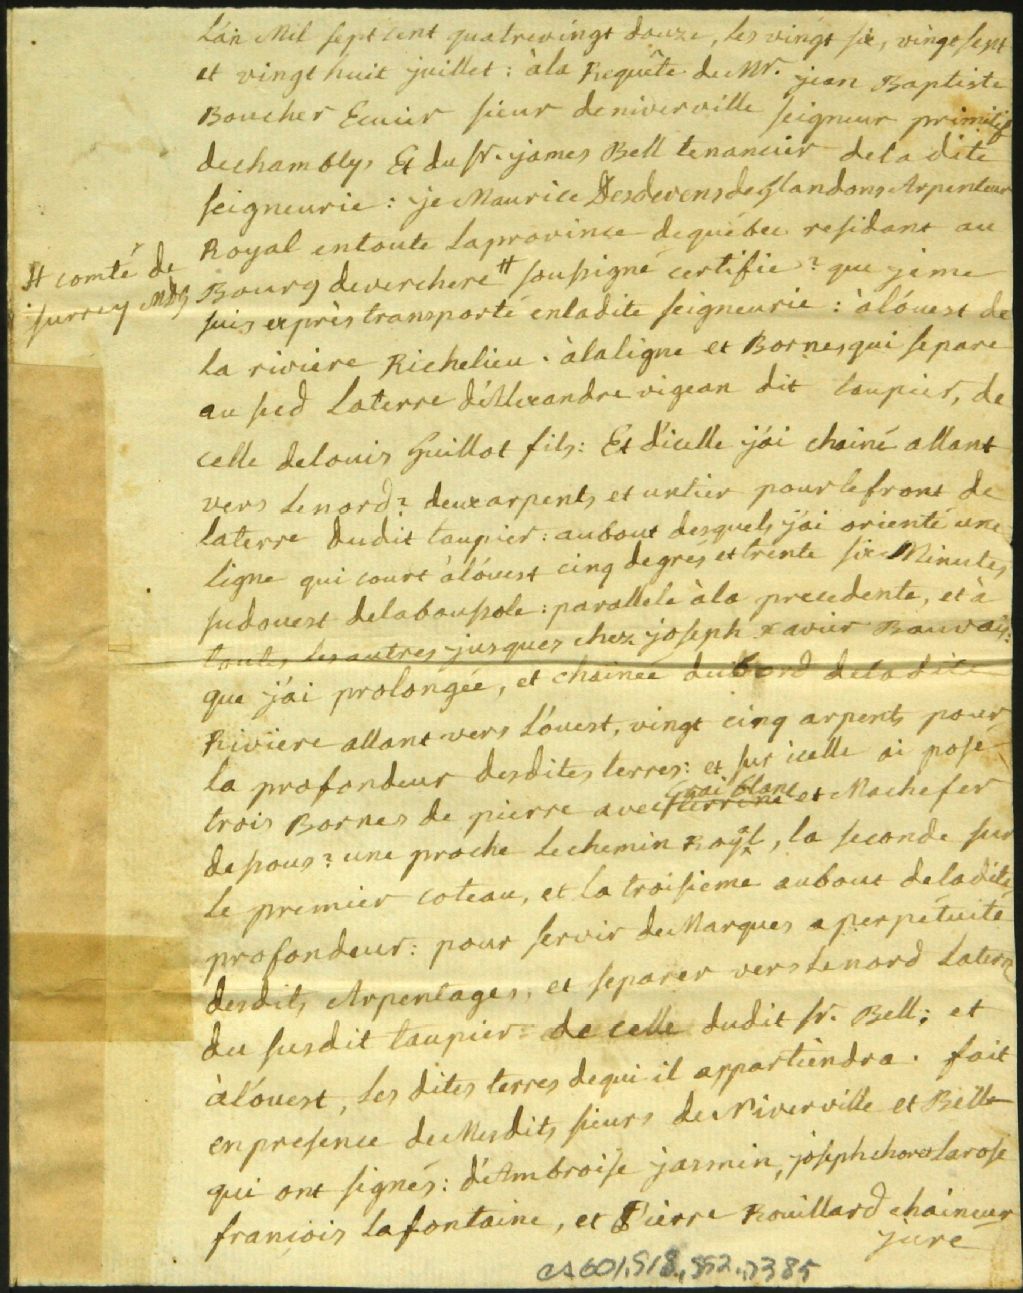 L'an Mil sept cent quatrevingt douze, les vingt six, vingt sept
et vingt huit juillet : à la Requête de Mr. jean Baptiste
Boucher Ecuier sieur deniverville seigneur primitif
dechamblys Et du sr. james Bell tenancier de la dite
seigneurie : je Maurice Desdevens de Glandons Arpenteur
Royal entoute laprovince dequébec residant au
# comté de
surrey MDG
Bourg deverchere # soussigné certifie ? que jeme
suis exprès transporté enladite seigneurie : àl'óuest de
la riviere Richelieu . àlaligne et Bornes qui separe
au sud laterre d'Alexandre vigean dit taupier, de
celle delouis Guillot fils : Et d'icelle j'ai chainé allant
vers lenord ? deuxarpents et untier pour lefront de
laterre dudit taupier : aubout desquels j'ai orienté une
ligne qui court àl'óuest cinq degrés et trente six Minutes
sudouest delaboussole : parallele àla precedente, et à
toutes lesautres jusques chez joseph xavier Bauvais :
que j'ai prolongée, et chainée dubord deladite
Riviere allant vers l'óuest, vingt cinq arpents pour
la profondeur desdites terres : et sur icelle ai posé
trois Bornes de pierre avec terrine et Machefer
dessous ? une proche lechemin Royl, la seconde sur
le premier coteau, et la troisieme aubout deladite
profondeur : pour servir de Marques a perpétuité
desdits Arpentages, et separer vers lenord laterre
du susdit taupier de celle dudit sr. Bell ; et
àl'óuest, les dites terres dequi il appartiendra . fait
enpresence de Mesdits sieurs de Niverville et Bell
qui ont signés : d'Ambroise jasmin, joseph Larose
françois Lafontaine, et Pierre Rouillard chaineur
juré
CA601,S18,SS2,D385